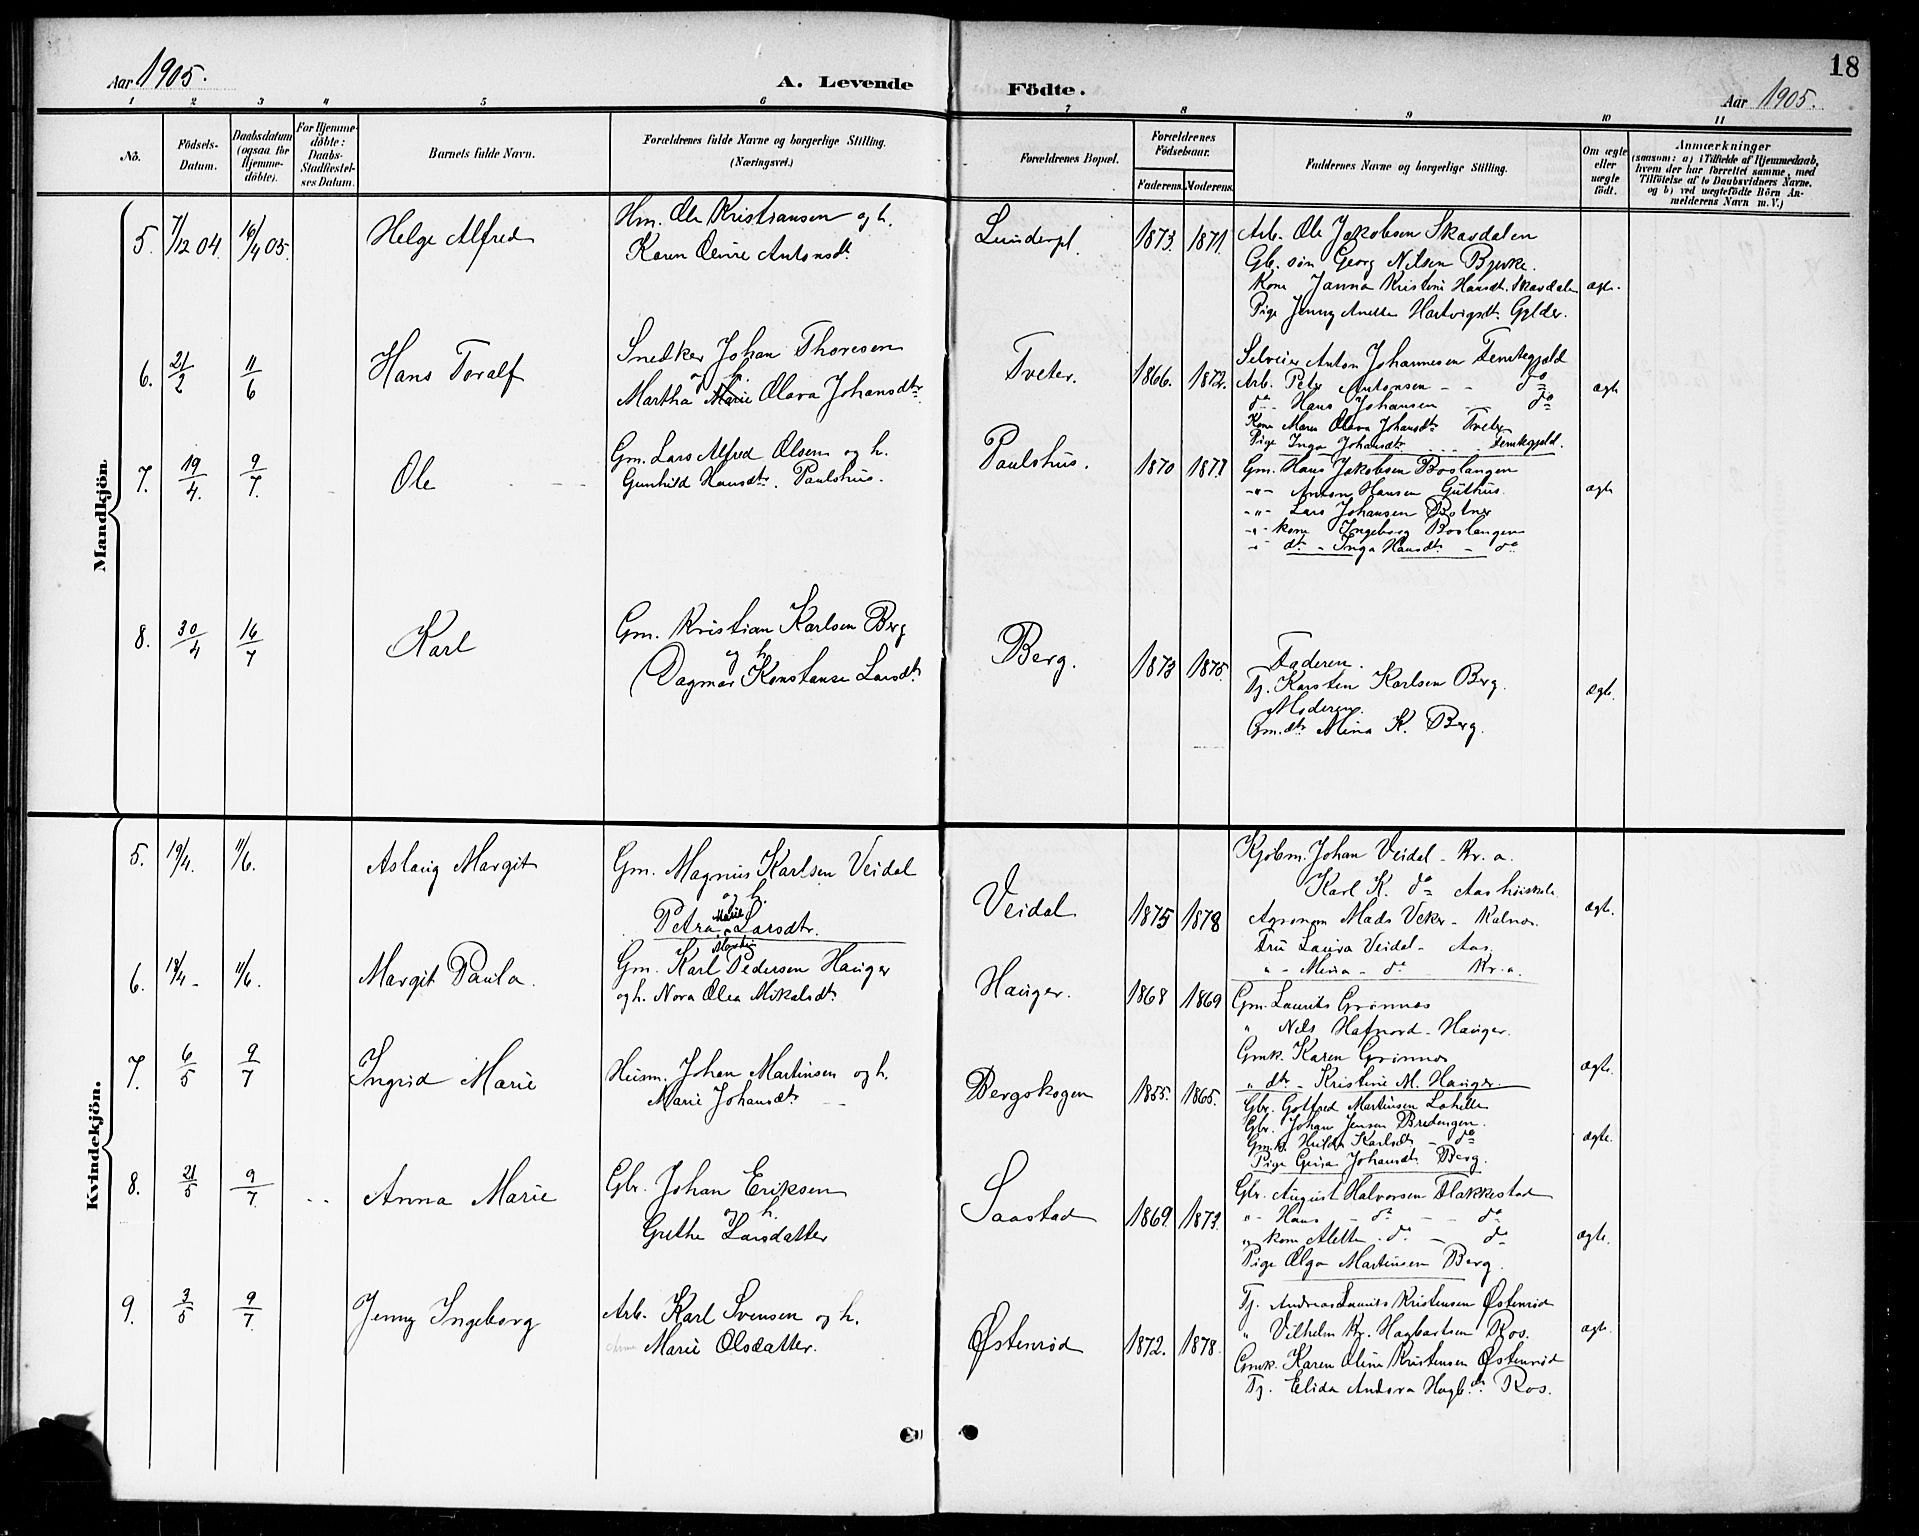 Aar 1905.
A. Levende
Födte.
18
Aar 1905.
1 2 3 4 5 6 7 8 9 10 11
No.
Födsels-
Datum.
Daabsdatum
(ogsaa for
Hjemme-
döbte).
For Hjemme-
döbte:
Daabs-
Stadfæstel-
ses Datum.
Barnets fulde Navn.
Forældrenes fulde Navne og borgerlige Stilling.
(Næringsvei.)
Forældrenes Bopæl.
Forældrenes
Födselsaar.
Faderens. Moderens.
Faddernes Navne og borgerlige Stilling.
Om ægte
eller
uægte
födt.
Anmærkninger
(saasom: a) i Tilfælde af Hjemmedaab,
hvem der har forrettet samme, med
Tilföielse af to Daabsvidners Navne.
og b) ved uægtefödte Börn An-
melderens Navn m. V.)
Mandkjön
5. 7/12 04. 16/4 05. Helge Alfred
Hm. Ole Kristiansen og h.
Karen Oline Antonsdt.
Lunderpl. 1873. 1871.
Arb. Ole Jakobsen Skavdalen
Gb. søn Georg Nilsen Bjerke.
Kone Janna Kristine Hansdt. Skavdalen ægte.
Pige Jenny Anette Hartvigsdt. Gylder.
6. 21/2 11/6 Hans Toralf
Snedker Johan Thoresen
og h.
Martha Marie Olava Johansdtr.
Tveter. 1866. 1872.
Selveier Anton Johannesen Temtegjeld
Arb. Petr Antonsen - - do
do - Hans Johansen - do
Kone Maren Olava Johansdtr Tveter
Pige Inga Johansdtr. . . . . Temtegjeld.
ægte
7. 19/4. 9/7. Ole
Gm. Lars Alfred Olsen og h.
Gunhild Hansdtr. Paulshus.
Paulshus. 1870 1878.
Gm. Hans Jakobsen Boslangen
-"- Anton Hansen Guthus.
-"- Lars Johansen Botner
-"- kone Ingeborg Boslangen
-"- dtr - Inga Hansdtr - do
ægte
8. 30/4 16/7 Karl
Gm. Kristian Karlsen Berg
og h
Dagmar Konstanse Larsdtr
Berg. 1873 1875.
Faderen.
Tj. Karsten Karlsen Berg.
Moderen.
Gm.dtr Mina K. Berg.
ægte.
Kvindekjön.
5. 19/4. 11/6. Aslaug Margit
Gm. Magnus Karlsen Veidal
og h.
Petra Marie Larsdtr.
Veidal 1875 1878
Kjøbm. Johan Veidal - Kr.a.
Karl K. do Aas høiskole
Agronom Mads Veker - Kalnes.
Fru Laura Veidal - Aas.
" - Mina - do Kr.a.
ægte.
6. 18/4 - 11/6. Margit Paula.
Gm. Karl Martin Pedersen Hauger
og h. Nora Olea Mikalsdtr.
Hauger. 1868 1869
Gm. Laurits Grønnes
" Nils Hafnord - Hauger.
Gmk. Karen Grønnes
" dtr - Kristine M. Hauger.
ægte.
7. 6/5 9/7 Ingrid Marie
Husm. Johan Martinsen og h.
Marie Johansdtr.
Bergskogen 1855. 1865.
Gbr. Gotfred Martinsen Lohelle
Gbr. Johan Jensen Bredengen.
Gmk. Hulda Karlsdt - do
Pige Gusa Johansdt. Berg.
ægte.
8. 21/5 9/7. Anna Marie
Gbr. Johan Eriksen
og h.
Grethe Larsdatter
Saastad 1869. 1873.
Gbr. August Halvorsen Flakkestad
" - Hans - do - - do
" kone Alette - do - do
Pige Olga Martinsen Berg.
ægte.
9. 3/5 9/7. Jenny Ingeborg
Arb. Karl Svensen og h.
Marie Olsdatter.
Østenrød 1872. 1878.
Tj. Andreas Laurits Kristensen Østenrød
" Vilhelm Kr. Hagbartsen Ros.
Gmk. Karen Oline Kristensen Østenrød
Tj. Elida Andora Hagb.dr. Ros.
ægte.